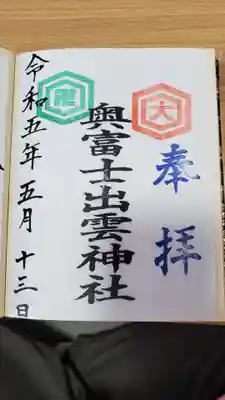 奉拝
大
奥富士出雲神社
令和五年五月十三日